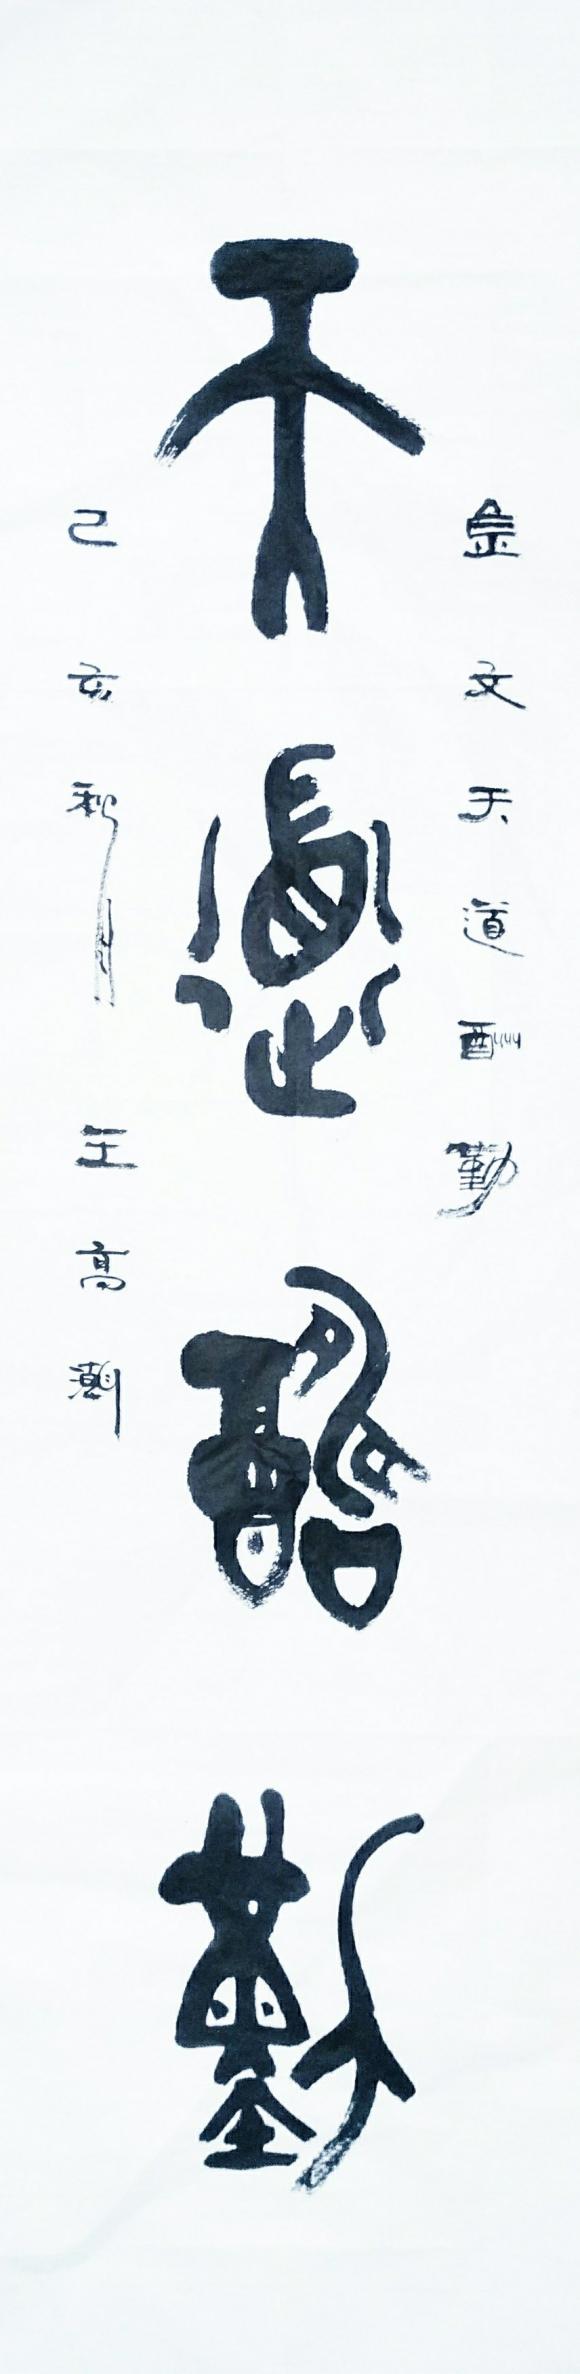 天道酬勤
金文天道酬勤
己亥秋月 王高潮